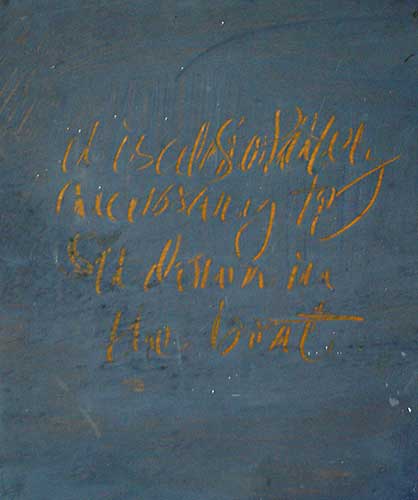 it is absolutely
necessary to
sit down in
the boat.